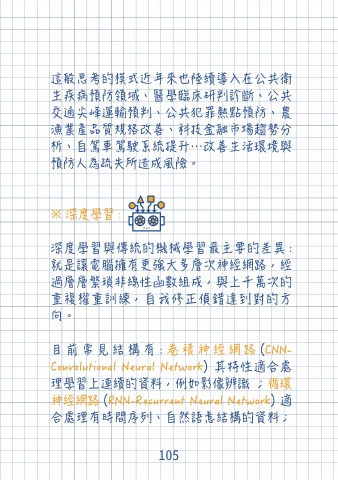 這般思考的模式近年來也陸續導入在公共衛
生疾病預防領域、醫學臨床研判診斷、公共
交通尖峰運輸預判、公共犯罪熱點預防、農
漁業產品質規格改善、科技金融市場趨勢分
析、自駕車駕駛系統提升…改善生活環境與
預防人為疏失所造成風險。
※ 深度學習：
深度學習與傳統的機械學習最主要的差異：
就是讓電腦擁有更強大多層次神經網路，經
過層層繁瑣非線性函數組成，與上千萬次的
重複權重訓練，自我修正偵錯達到對的方
向。
目前常見結構有：卷積神經網路 (CNN-
Convolutional Neural Network) 其特性適合處
理學習上連續的資料，例如影像辨識 ；循環
神經網路 (RNN-Recurrent Neural Network) 適
合處理有時間序列、自然語意結構的資料；
105